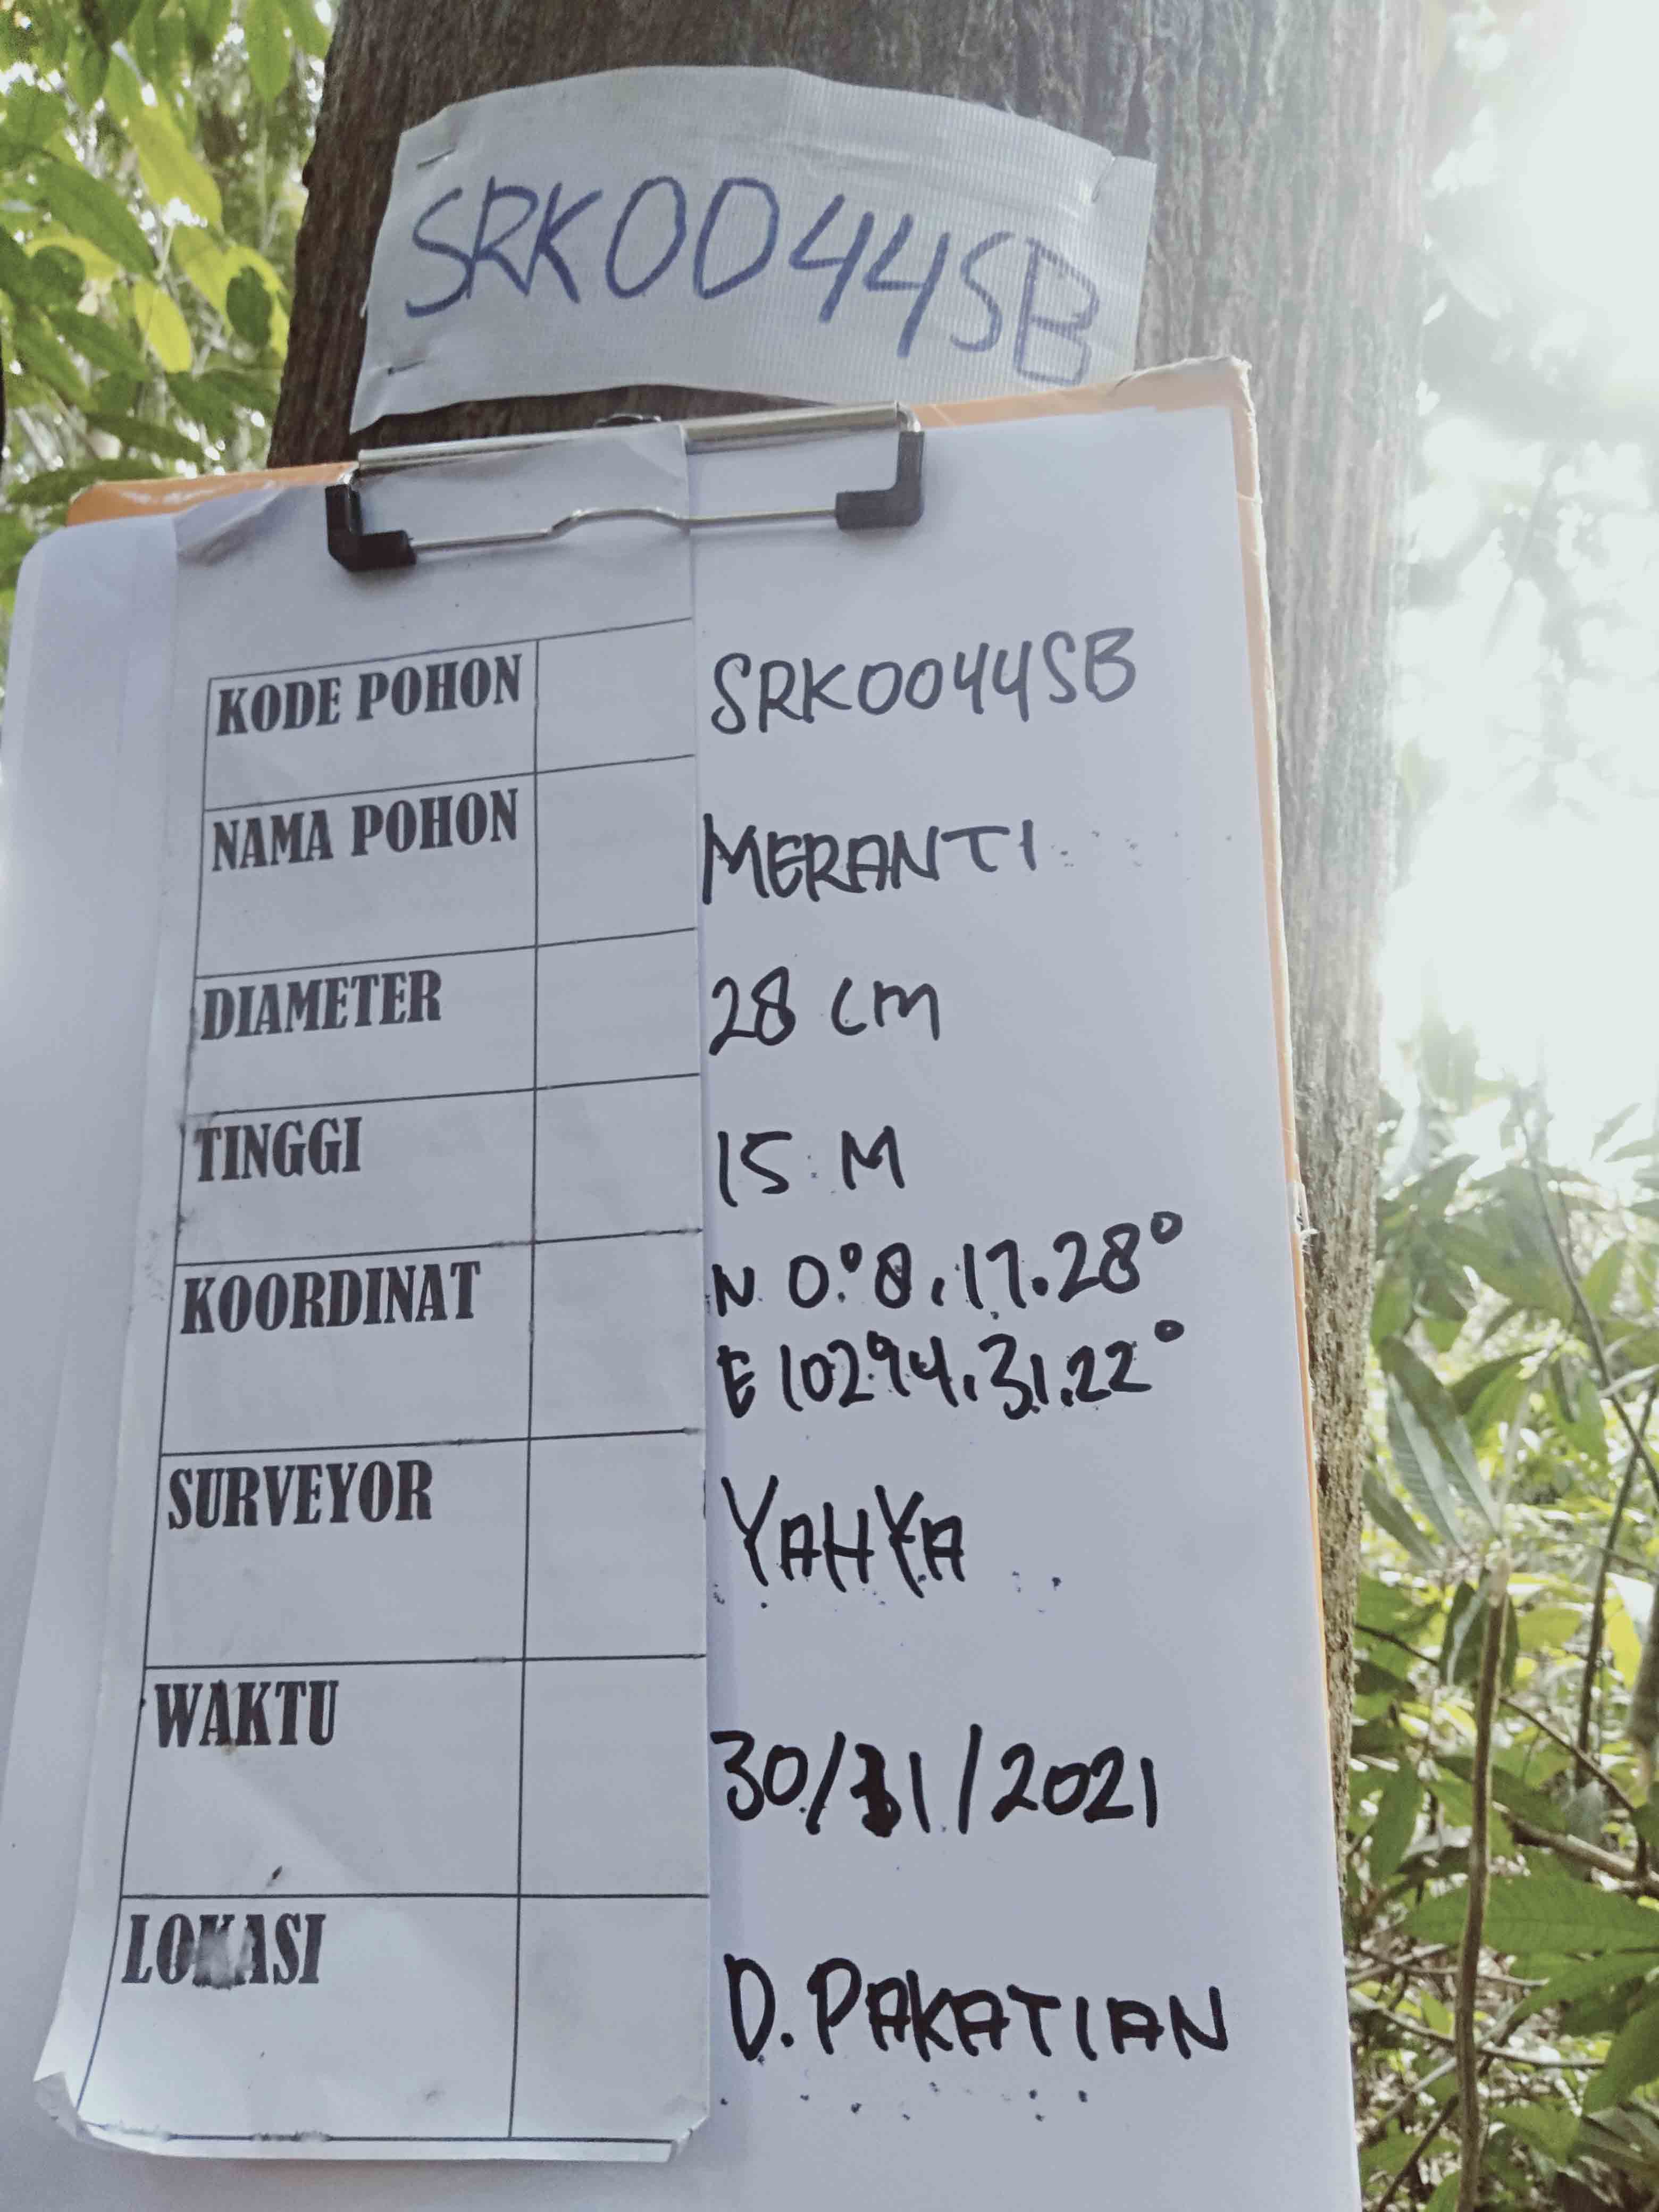 SRK0044SB
KODE POHON SRK0044SB
NAMA POHON MERANTI
DIAMETER 28 cm
TINGGI 15 M
KOORDINAT N 0.°8,17.28°
E 10294,31.22°
SURVEYOR YAHYA
WAKTU 30/31/2021
LOKASI D. PAKATIAN